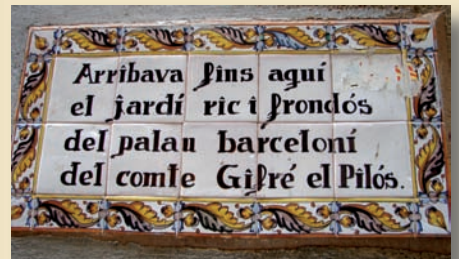 Arribava fins aquí
el jardí ric i frondós
del palau barceloní
del comte Gifré el Pilós.